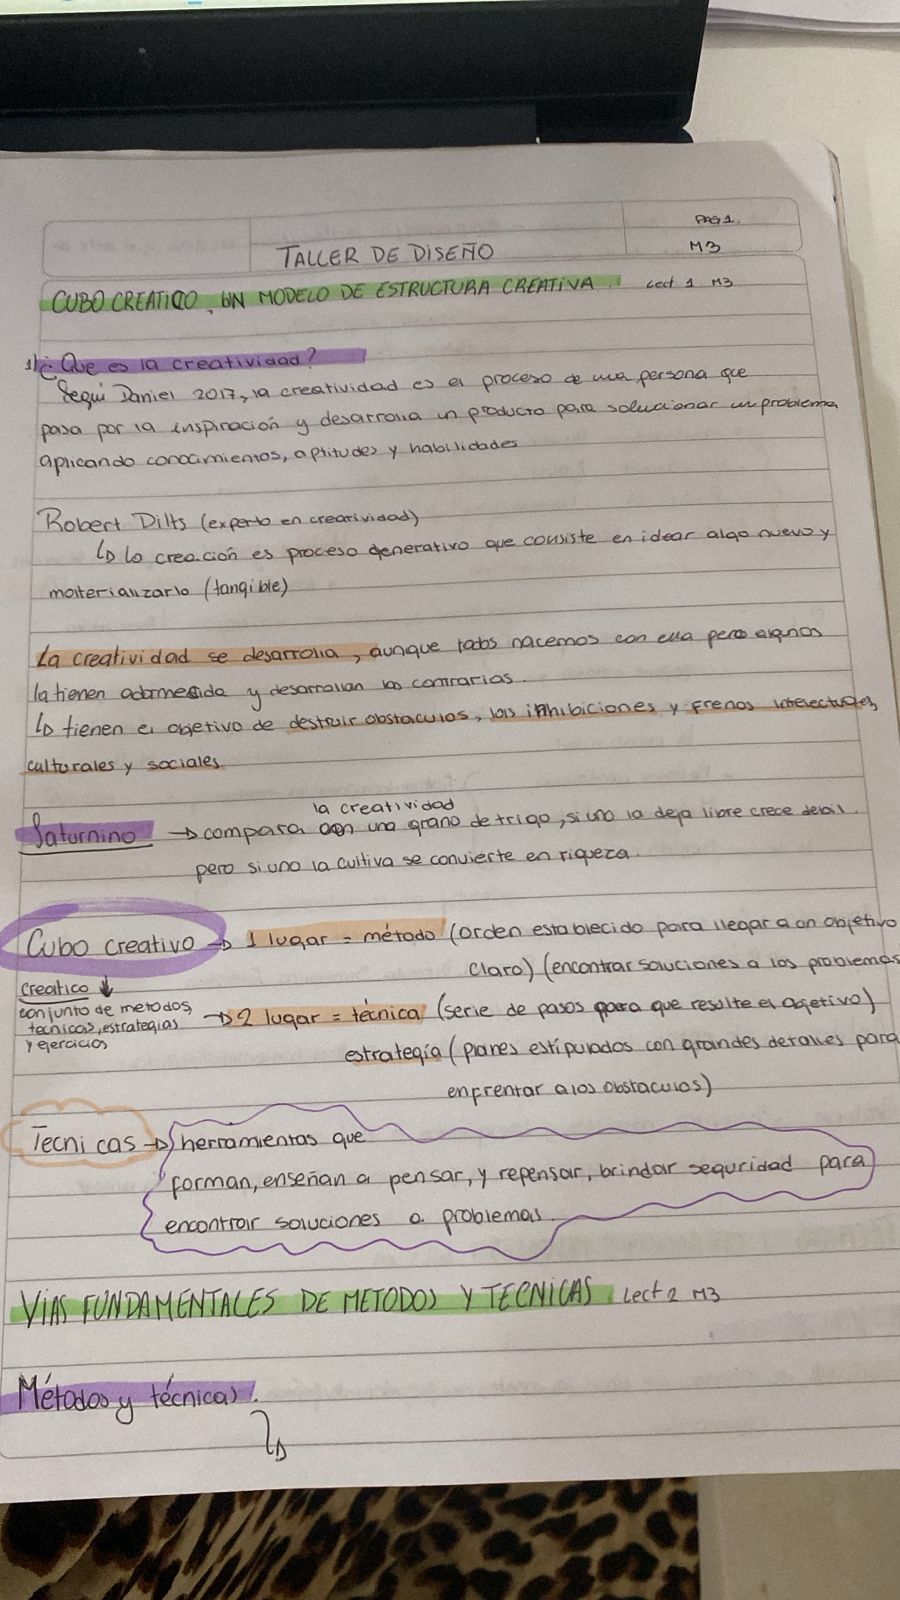 PAG 1.
TALLER DE DISEÑO
M3
CUBO CREATICO, UN MODELO DE ESTRUCTURA CREATIVA. Lect 1 M3
1) ¿Que es la creatividad?
Según Daniel 2017, la creatividad es el proceso de una persona que
pasa por la inspiración y desarrolla un producto para solucionar un problema,
aplicando conocimientos, aptitudes y habilidades
Robert Dilts (experto en creatividad)
↳ La creación es proceso generativo que consiste en idear algo nuevo y
materializarlo (tangible)
La creatividad se desarrolla, aunque todos nacemos con ella pero algunos
la tienen adormecida y desarrollan los contrarios.
↳ tienen el objetivo de destruir obstaculos, las inhibiciones y frenos intelectuales,
culturales y sociales
la creatividad
Saturnino → compara con una grano de trigo, si uno la deja libre crece debil.
pero si uno la cultiva se convierte en riqueza.
Cubo creativo → 1 lugar = método (orden establecido para llegar a un objetivo
claro) (encontrar soluciones a los problemas
creatico ↓
conjunto de metodos,
tecnicas, estrategias
y ejercicios
→ 2 lugar = técnica (serie de pasos para que resulte el objetivo)
estrategia (planes estipulados con grandes detalles para
enfrentar a los obstaculos)
Tecnicas → herramientas que
forman, enseñan a pensar, y repensar, brindar seguridad para
encontrar soluciones a problemas
VIAS FUNDAMENTALES DE METODOS Y TECNICAS Lect 2 M3
Métodos y técnicas.